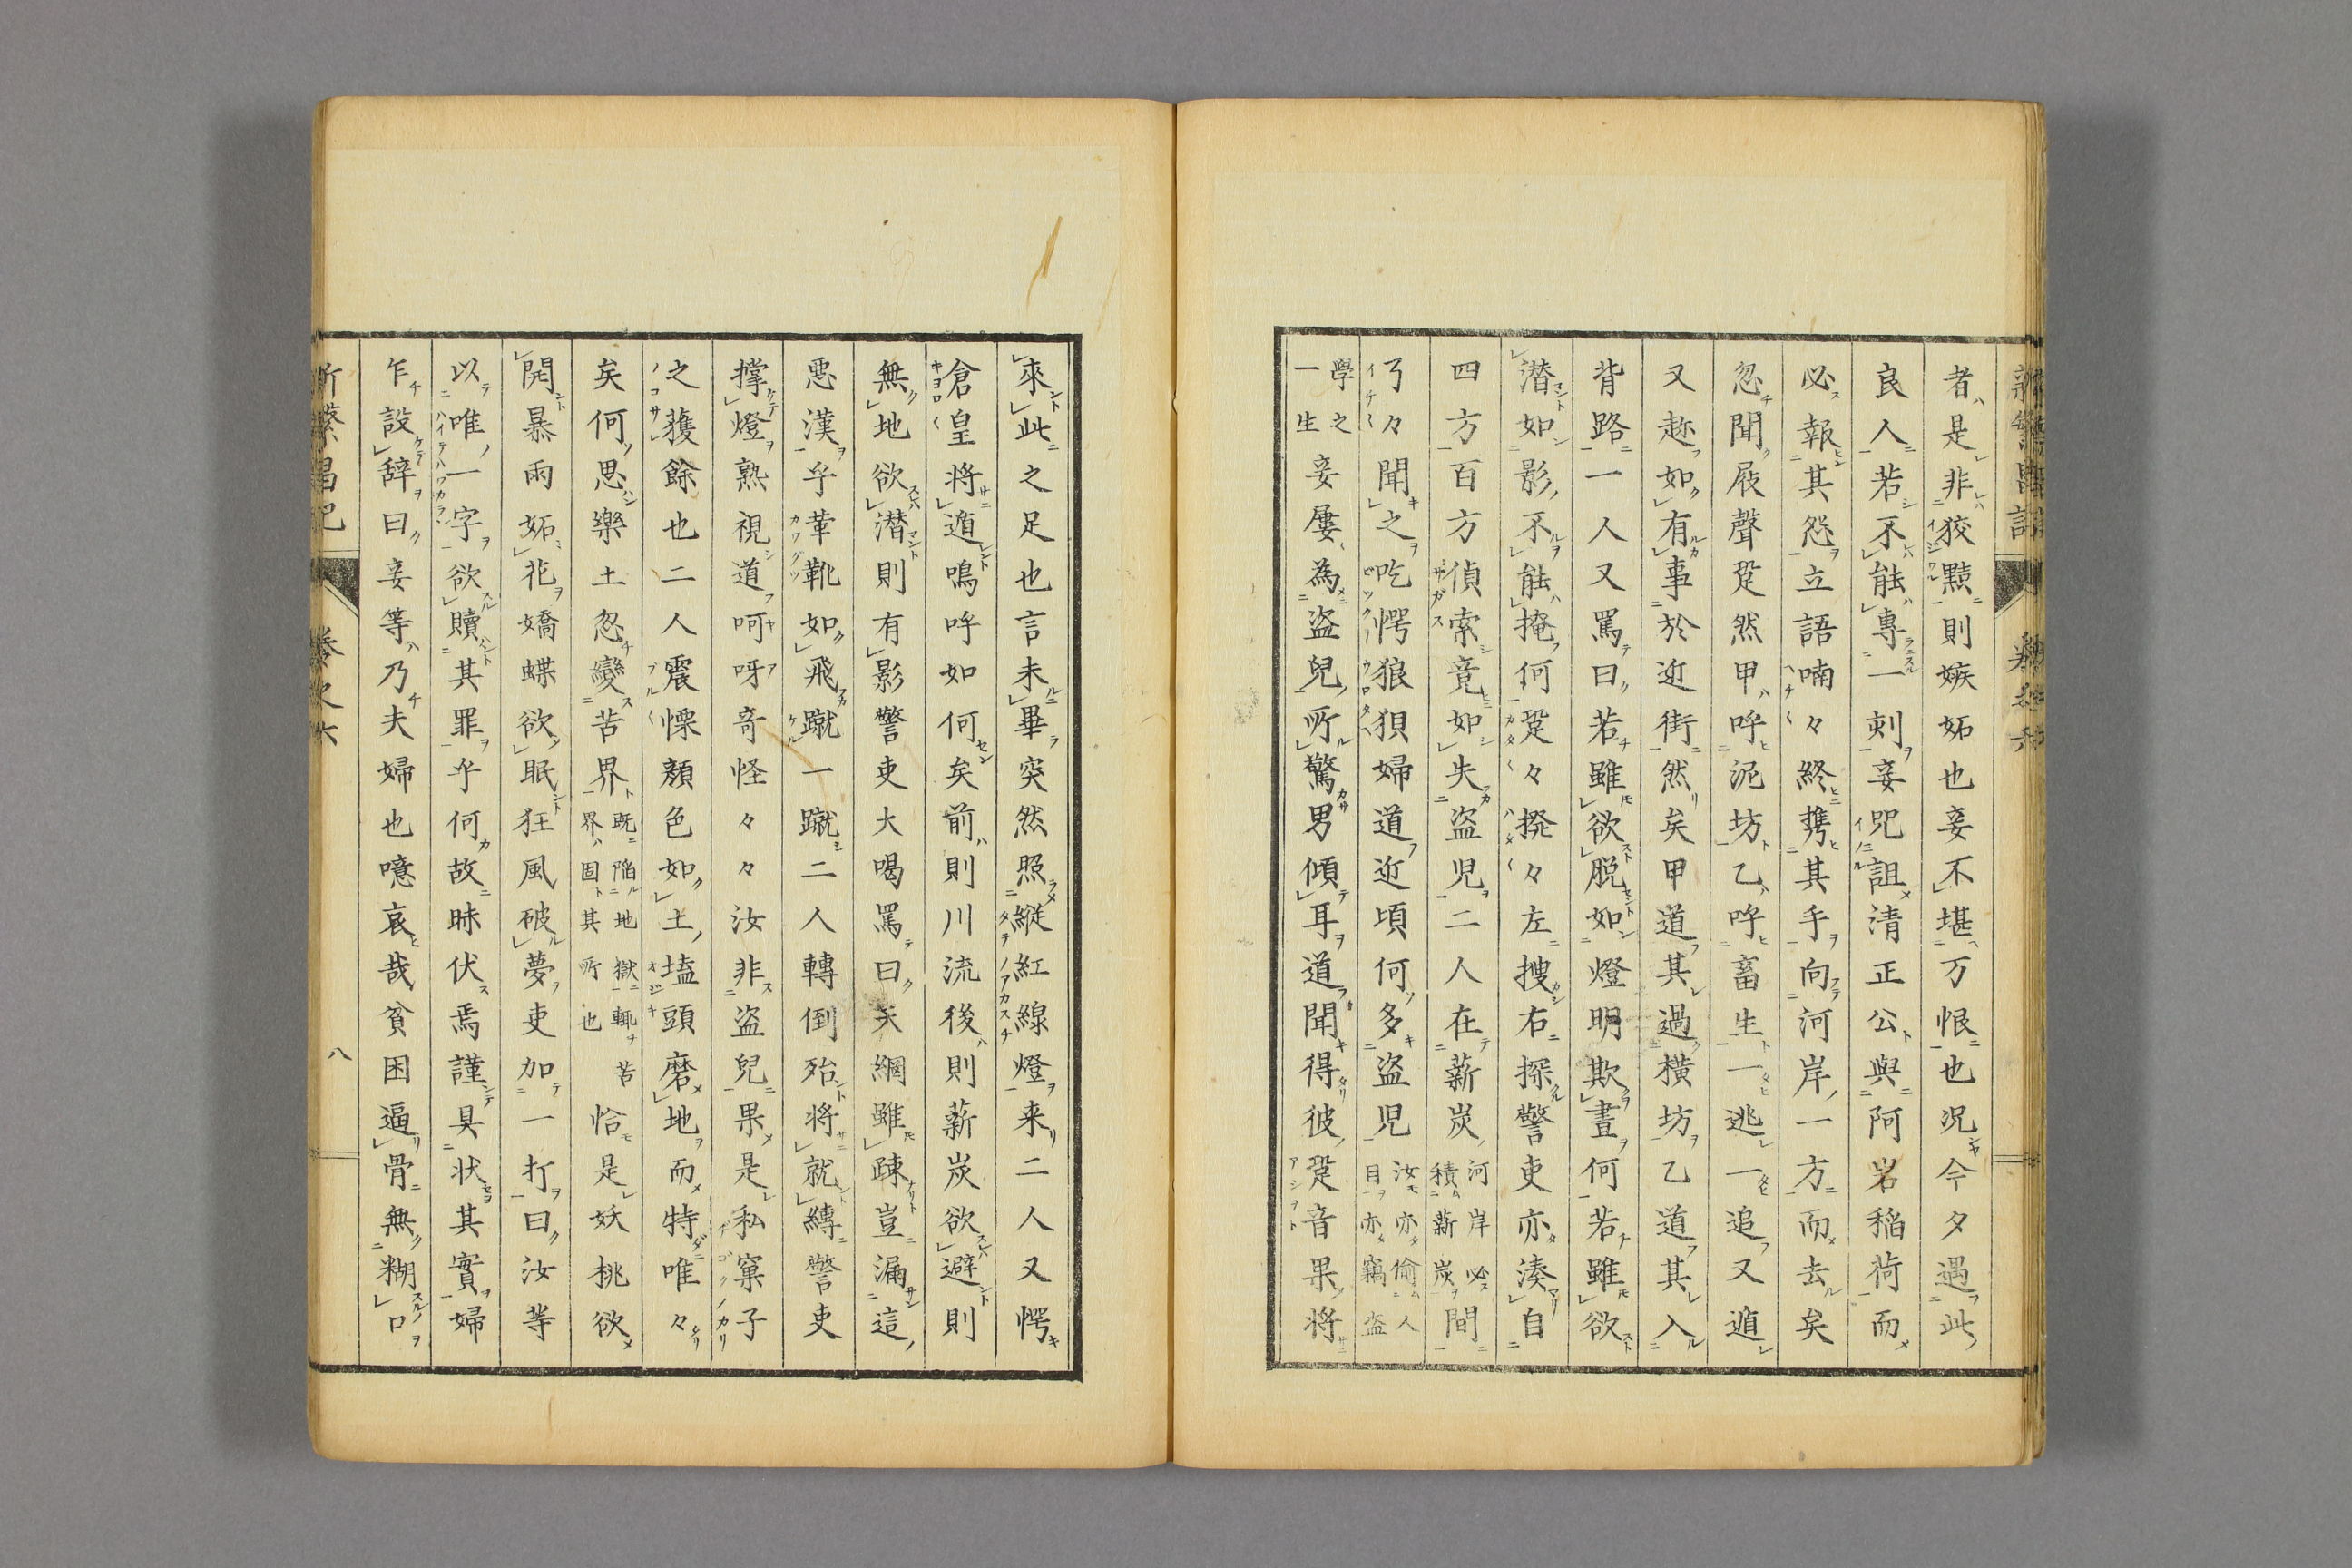 者是非狡黠則嫉妬也妾不堪万恨也況今夕遇此
良人若不能專一刺妾咒詛清正公與阿岩稲荷而
必報其怨立語喃々終携其手向河岸一方而去矣
忽聞屐聲跫然甲呼泥坊乙呼畜生一逃一追又遁
又趂如有事於近街然矣甲道其過横坊乙道其入
背路一人又罵曰若雖欲脱如燈明欺晝何若雖欲
潜如影不能掩何跫々揆々左搜右探警吏亦湊自
四方百方偵索竟如失盗児二人在薪炭河岸必積薪炭間
丂々聞之吃愕狼狽婦道近頃何多盗児汝亦偷人目亦竊盗
學之一生妾屢為盗兒所驚男傾耳道聞得彼跫音果将
來此之足也言未畢突然照縦紅線燈来二人又愕
倉皇将遁嗚呼如何矣前則川流後則薪炭欲避則
無地欲潜則有影警吏大喝罵曰天網雖踈豈漏這
悪漢乎革靴如飛蹴一蹴二人轉倒殆将就縛警吏
撑燈熟視道呵呀奇怪々々汝非盗兒果是私窠子
之獲餘也二人震慄顔色如土塩頭磨地而特唯々
矣何思樂土忽變苦界既陥地獄輙苦界固其所也恰是妖桃欲
開暴雨妬花嬌蝶欲眠狂風破夢吏加一打曰汝等
以唯一字欲贖其罪乎何故昧伏焉謹具状其實婦
乍設辞曰妾等乃夫婦也噫哀哉貧困逼骨無糊口
新繁昌記
巻之六
八